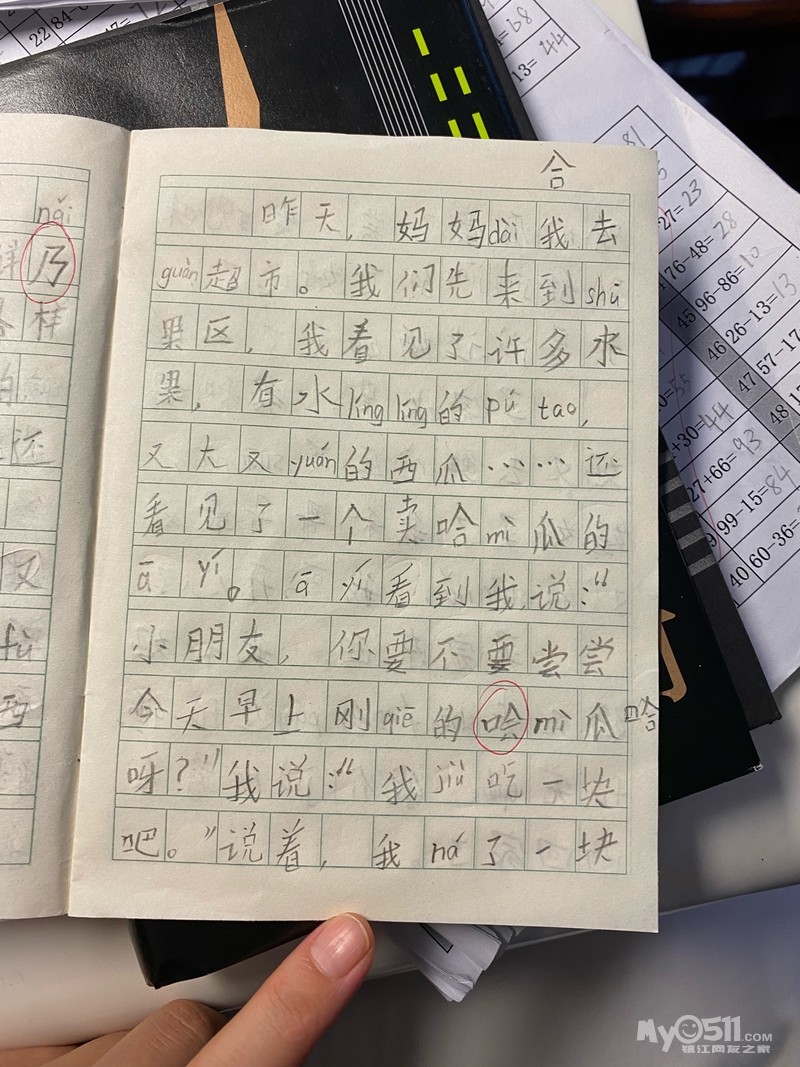 合
昨天，妈妈dài我去
guàn超市。我们先来到shū
果区，我看见了许多水
果，有水líng líng的pú tao，
又大又yuán的西瓜……还
看见了一个卖哈mì瓜的
ā yí。ā yí看到我，说：“
小朋友，你要不要尝尝
今天早上刚qiē的哈mì瓜
哈
呀？”我说：“我jiù吃一块
吧。”说着，我ná了一块
nǎi
乃
样
还
又
fù
西
81
27=23
76-48=28
45 96-86=10
46 26-13=13
47 57-17
48
+30=44
27+66=93
99-15=84
40 60-36=
13=44
My0511.COM
镇江网友之家